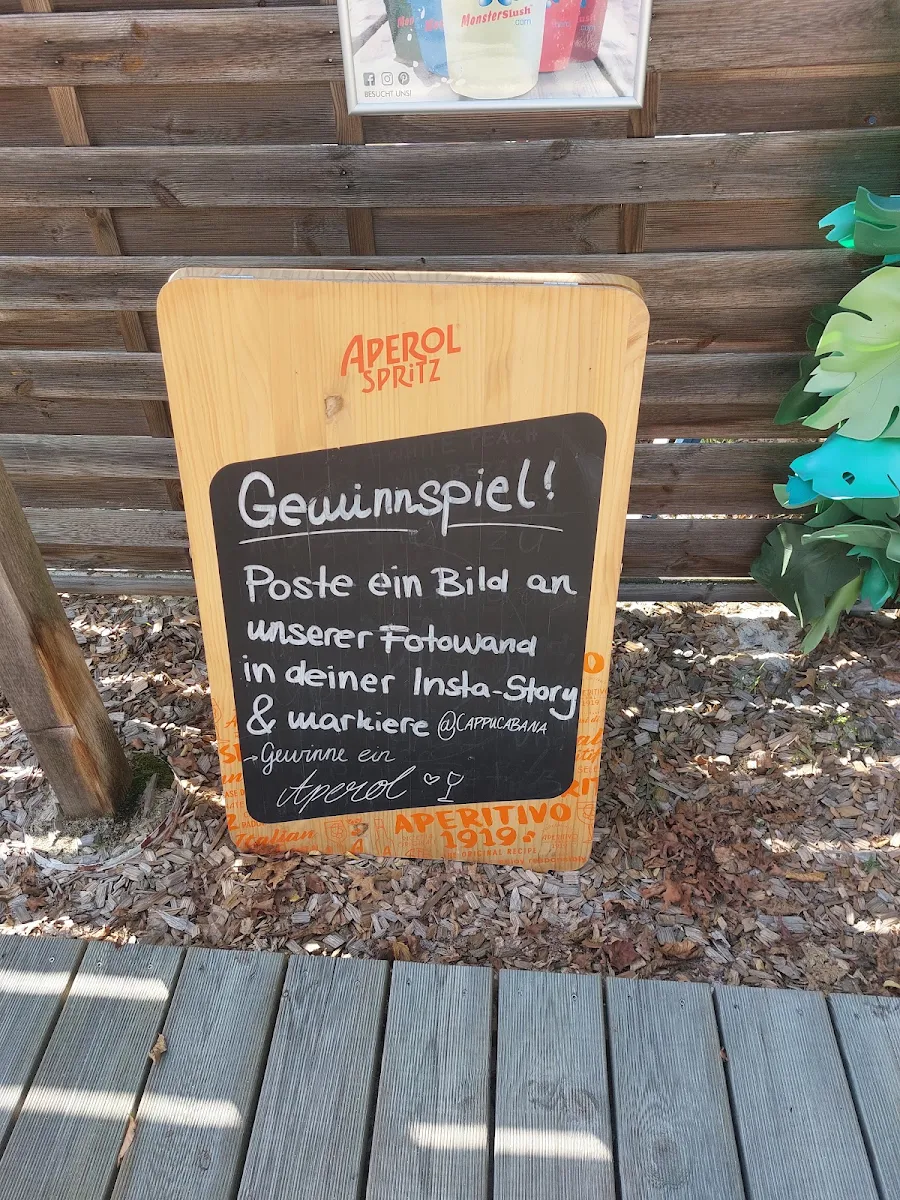 MonsterSlush
.com
BESUCHT UNS!
APEROL
SPRITZ
WHITE PEACH
Gewinnspiel!
Poste ein Bild an
unserer Fotowand
in deiner Insta-Story
& markiere @CAPPUCABANA
→ Gewinne ein
Aperol
APERITIVO
1919
ORIGINAL RECIPE
Italian